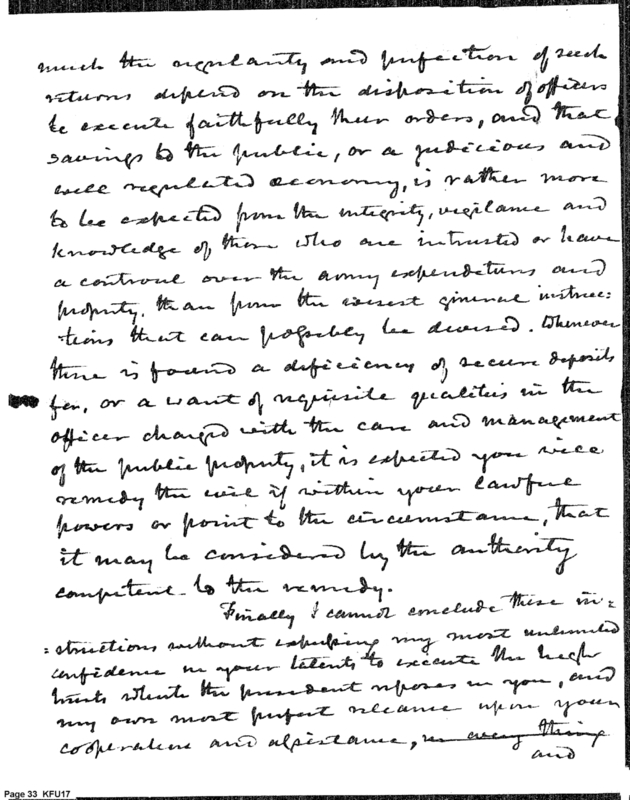 much the regularity and perfection of such
returns depend on the disposition of officers
to execute faithfully their orders, and that
savings to the public, or a judicious and
well regulated œconomy, is rather more
to be expected from the integrity, vigilance and
knowledge of those who are intrusted or have
a controul over the army expenditures and
property, than from the wisest general instruc=
=tions that can possibly be devised. Whenever
there is found a deficiency of secure deposits
for, or a want of requisite qualities in the
officer charged with the care and management
of the public property, it is expected you will
remedy the evil if within your lawful
powers or point to the circumstance, that
it may be considered by the authority
competent to the remedy.
Finally I cannot conclude these in=
=structions without expressing my most unlimited
confidence in your talents to execute the high
trusts which the president reposes in you, and
my own most perfect reliance upon your
cooperation and assistance, in every thing
and
Page 33 KFU17